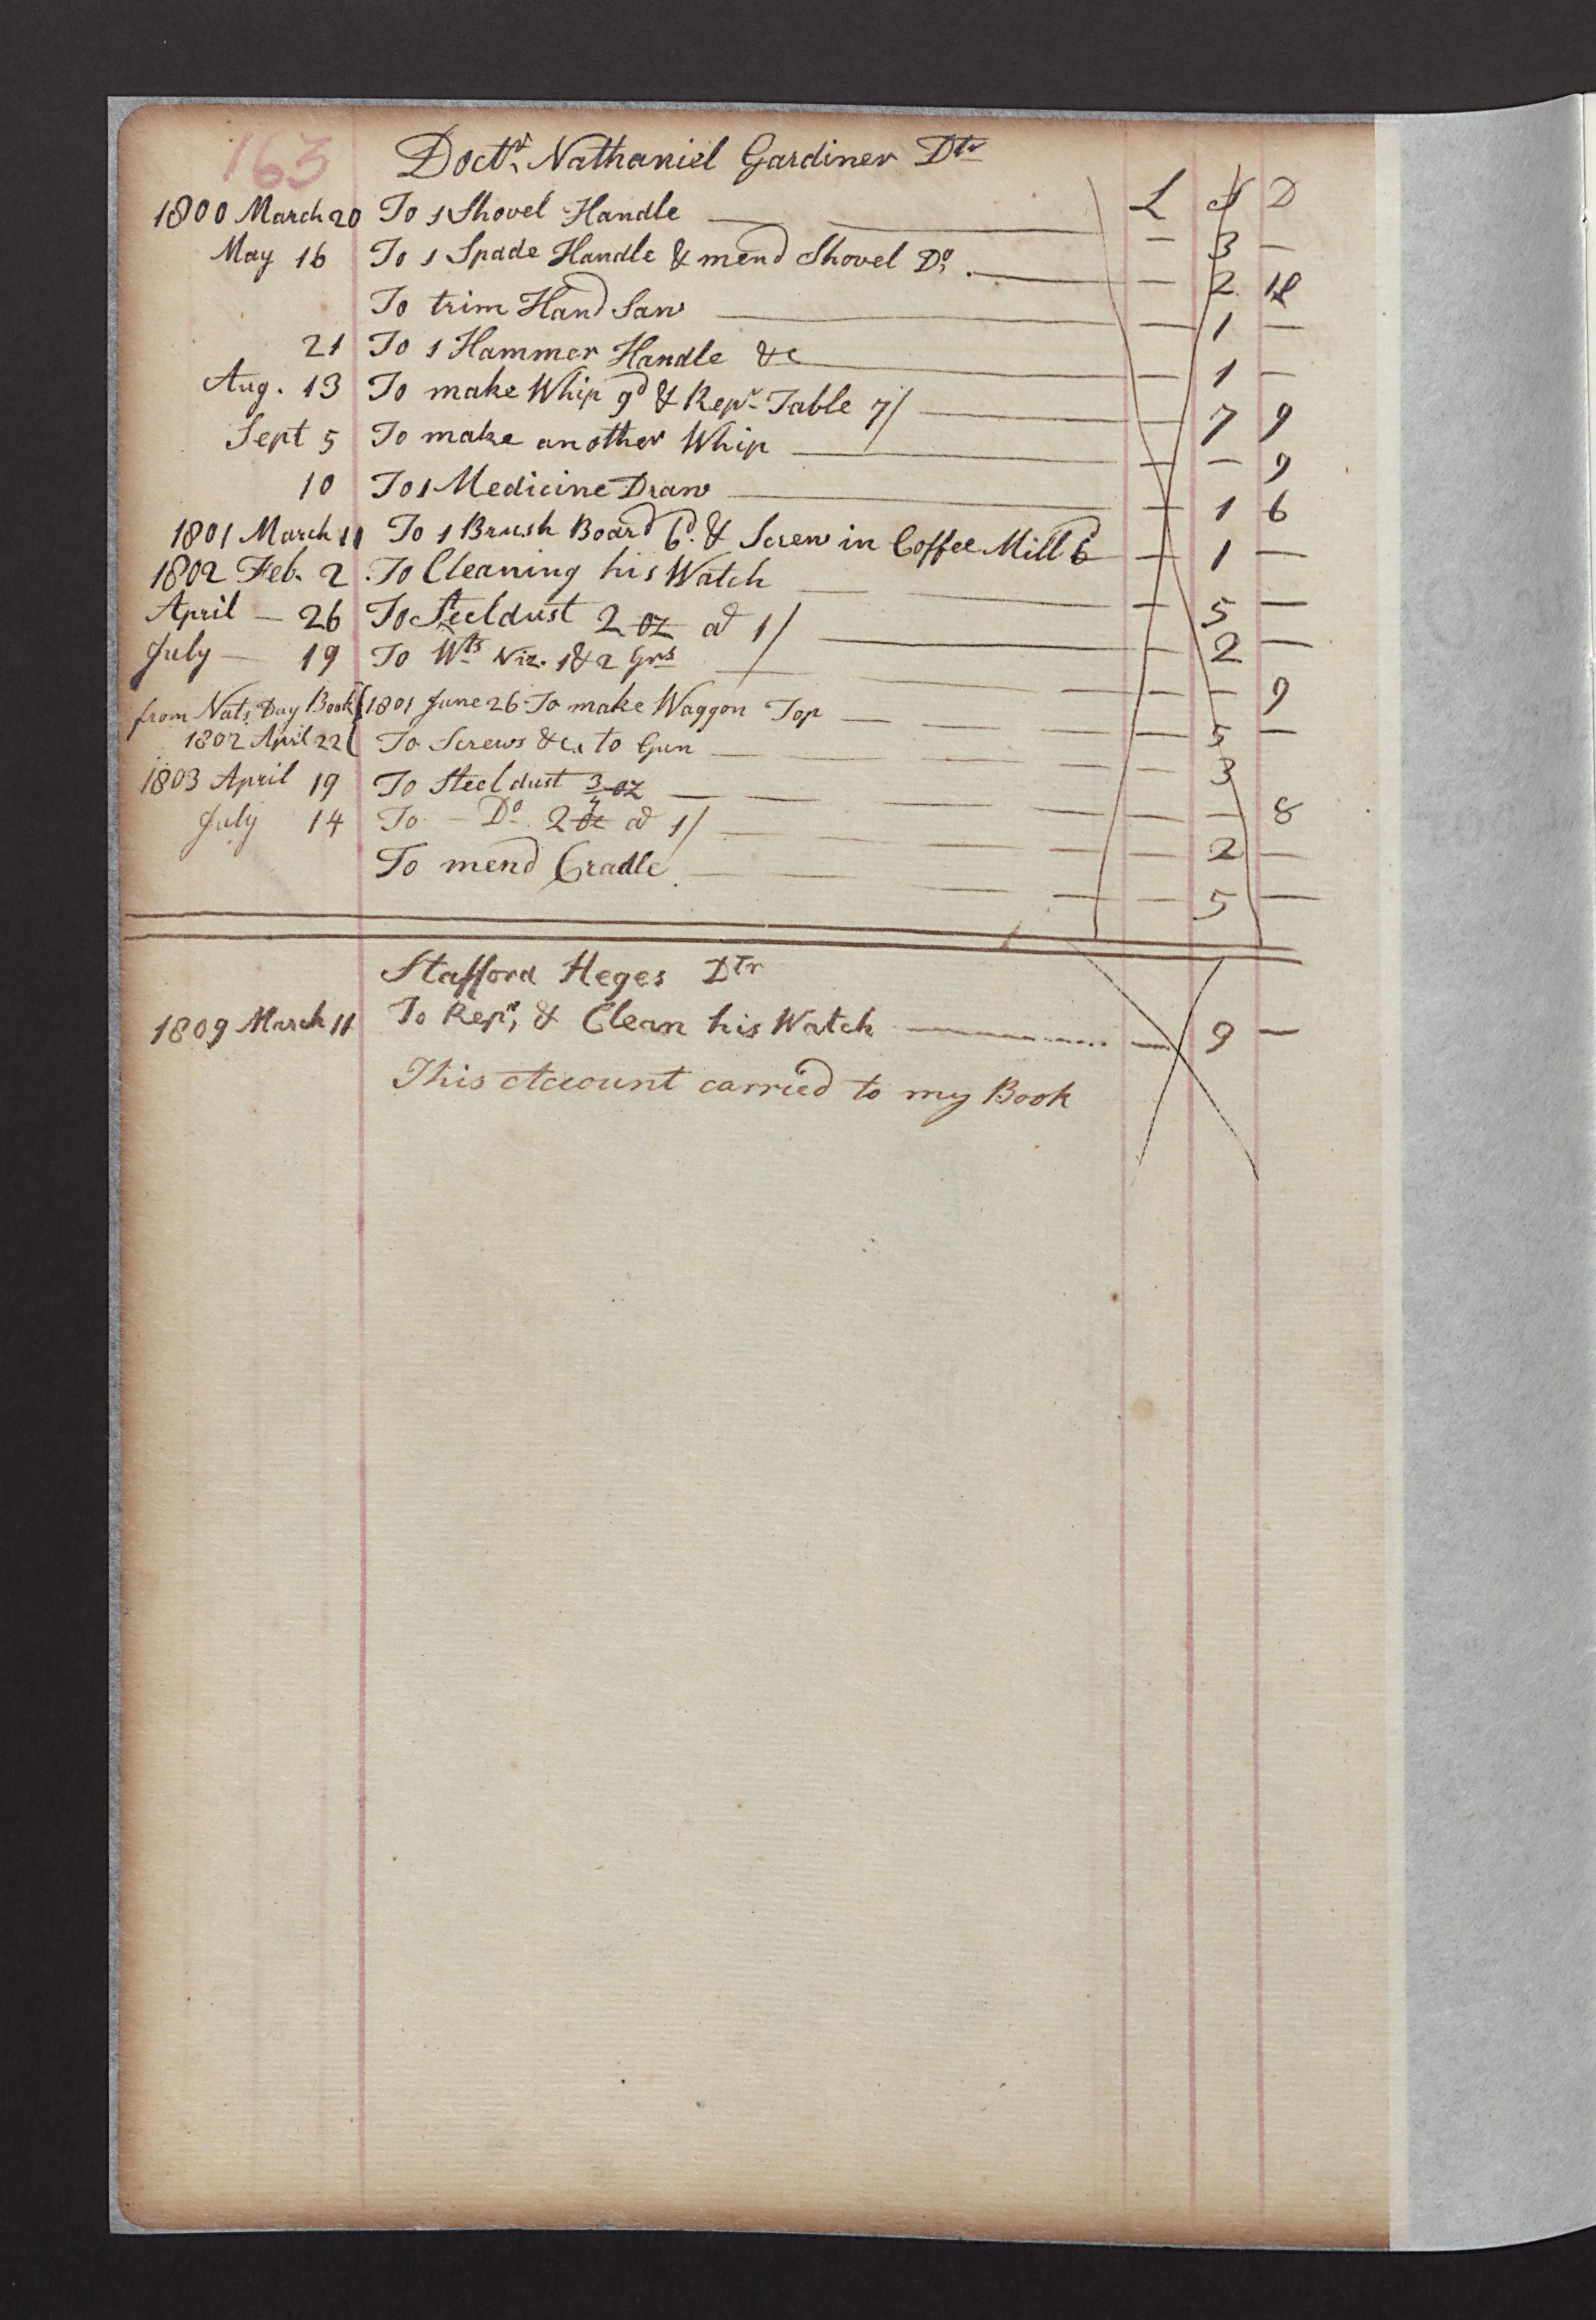 163
Doctr. Nathaniel Gardiner Dtr
L S D
1800 March 20 To 1 Shovel Handle — — 3 —
May 16 To 1 Spade Handle & mend Shovel Do. — — 2
To trim Hand Saw — — 1 —
21 To 1 Hammer Handle &c — — 1 —
Aug. 13 To make Whip 9d & Repr. Table 7/ — — 7 9
Sept 5 To make another Whip — — — 9
10 To 1 Medicine Draw — — 1 6
1801 March 11 To 1 Brush Board 6d. & Screw in Coffee Mill 6 — 1 —
1802 Feb. 2 To Cleaning his Watch — — 5 —
April — 26 To Steeldust 2 oz at 1/ — — 2 —
July — 19 To Wts Viz. 1 & 2 Grs — — — 9
from Nats. Day Book 1801 June 26 To make Waggon Top — — 5 —
1802 April 22 To Screws &c. to Gun — — 3
1803 April 19 To Steel dust 3/4 oz — — — 8
July 14 To — Do 2 oz at 1/ — — 2 —
To mend Cradle — — 5 —
Stafford Heges Dtr
1809 March 11 To Repr. & Clean his Watch — — 9 —
This Account carried to my Book